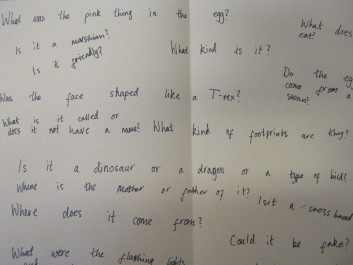 What was the pink thing in the egg?
What does
eat?
Is it a marshian?
What kind is it?
Is it friendly?
Do the eg
come from a
Was the face shaped like a T-rex?
What is it called or
does it not have a name?
What kind of footprints are they?
Is it a dinosaur or a dragon or a type of bird?
Where is the mother or father of it?
Is it a cross breed
Where does it come from?
Could it be fake?
What were the flashing lights